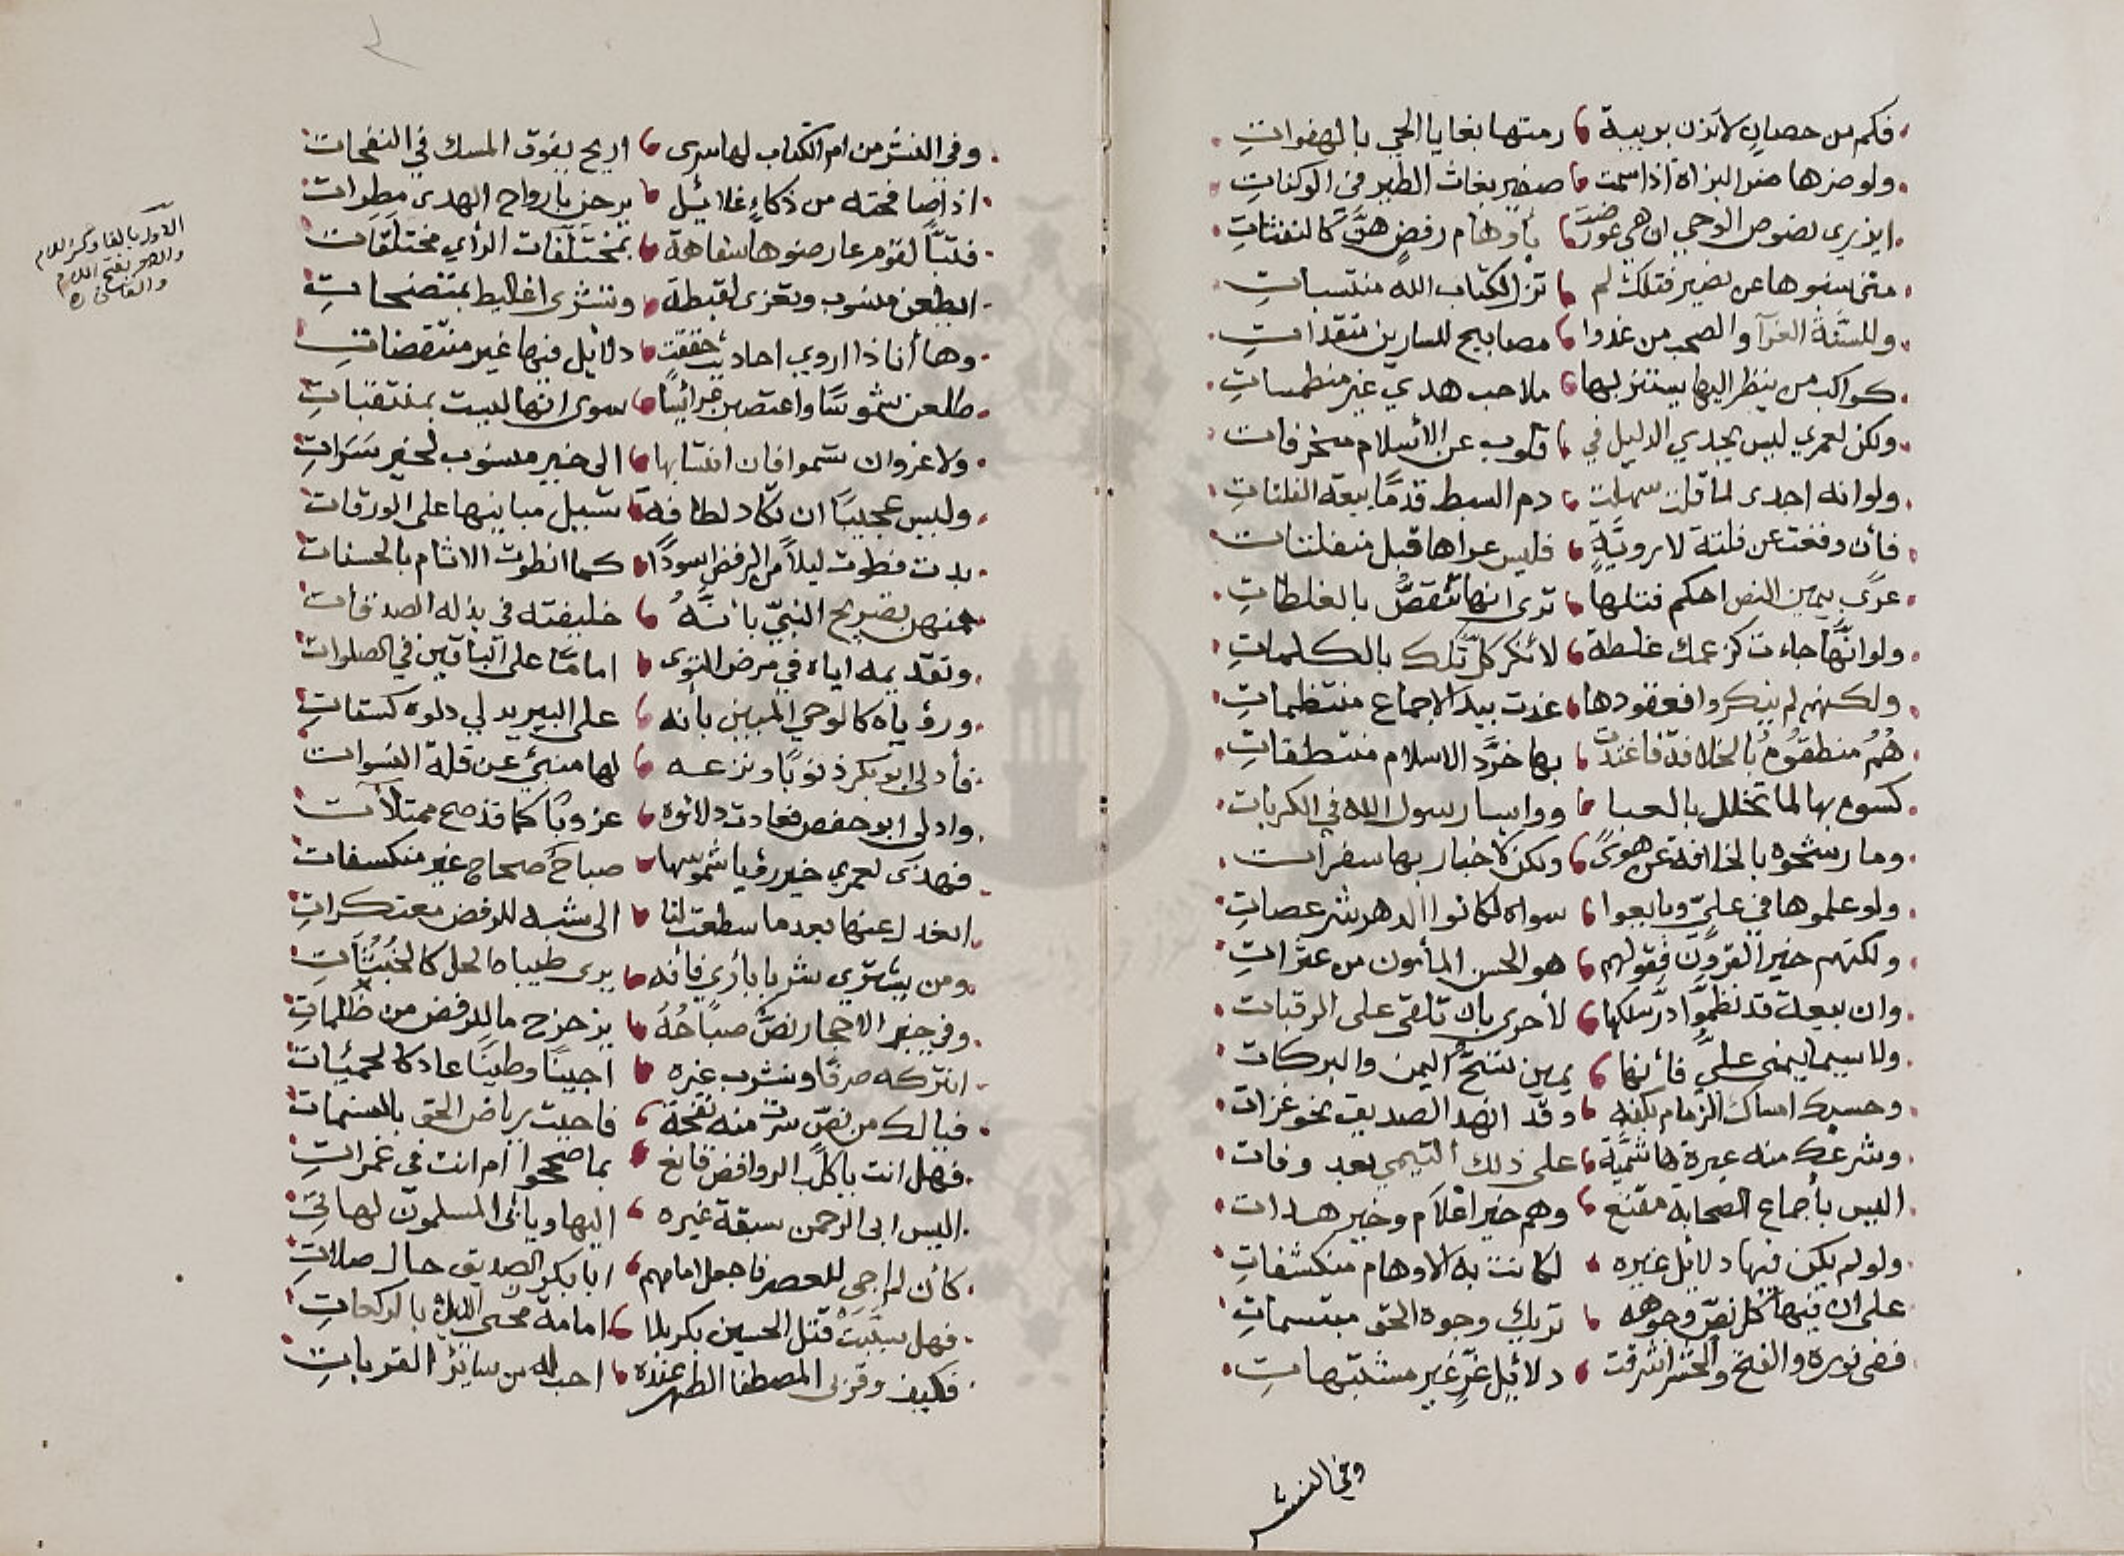 فكم من حصان لا تزن بريبة رمتها بغايا الحي بالهفوات
ولو ضرها ضر البزاة اذا سمت صفير بغاث الطير في الوكنات
ايزيري نصوص الوحي ان هي عورضت بأوهام رفض هن كالنفثات
متى بنوها عن نضير فتلك لم تزل لكتاب الله منتسبات
وللسنة الغرآ والصحب من غدوا مصابيح للسارين متقدات
كواكب من ينظر اليها يستنر بها ملاحب هدي غير منطمسات
ولكن لعمري ليس يجدي الدليل في قلوب عن الأسلام منحرفات
ولو انه اجدى لما قلت سهلت دم السبط قدمًا بيعة الفلتات
فأن وقعت عن فلتة لا روية فليس عراها قبل منفلتات
عرى بيمين النص احكم فتلها ترى انها تنقض بالغلطات
ولو انّها جاءت كزعمك غلطة لأنكر كل تلك بالكلمات
ولكنهم لم ينكروا فعقودها غدت بيد الاجماع منتظمات
هُمُ منطقوه بالخلافة فاغتدت بها خرَّد الاسلام منتطقات
كسوه بها لما تخلل بالعبا وواسا رسول الله في الكربات
وما رشحوه بالخلافة عن هوىً ولكن لأخبار بها سفرات
ولو علموها في عليّ وبايعوا سواه لكانوا الدهر شر عصات
ولكنهم خير القرون فقولهم هو الحسن المأمون من عثرات
وان بيعة قد نظموا در سلكها لأحرى بان تلقى على الرقبات
ولا سيما يمنى عليّ فأنها يمين تسحّ اليمن والبركات
وحسبك امساك الزمام بكفه وقد انهد الصديق نحو غزات
وشرعك منه عبرة هاشمية على ذلك التيمي بعد وفات
اليس بأجماع الصحابة مقنع وهم خير اعلام وخير هدات
ولو لم يكن فيها دلائل غيره لكانت به الاوهام منكشفات
على ان فيها كل نصّ وجوهه تريك وجوه الحق مبتسمات
ففى نوره والفتح والحشر اشرقت دلائل غرّ غير مشتبهات
وفي النشر
وفي النشر من ام الكتاب لها سرى اريج يفوق المسك في النفحات
اذا ضافحته من ذكاء غلائل يرحن بارواح الهدى مطرات
فتبًّا لقوم عارضوها سفاهة بمختلَقات الرأي مختلِقات
وها أنا ذا اروي احاديث حققت دلائل فيها غير منتقضات
طلعن شموسًا واعتصبن غرائبًا سوى انها ليست بمنتقبات
ولا غرو ان تسموا فان انتسابها الى خير منسوب لخير سَرَات
وليس عجيبًا ان تكاد لطافة تسيل مبانيها على الورقات
بدت فطوت ليلاً من الرفض اسودًا كما انطوت الاثام بالحسنات
فمنهن تصريح النبيّ بأنّهُ خليفته في بذله الصدقات
وتقديمه اياه في مرض التوى امامًا على الباقين في الصلوات
ورؤياه كالوحي المبين بأنه على البير يدلي دلوه كسقات
فأدلى ابو بكر ذنوبًا ونزعه لها منبئ عن قلة السنوات
وادلى ابو حفص فعادت دلائوه غروبًا كما قد صح ممتلآت
فهذى لعمري خير رؤيا شموسها صباح صحاح غير منكسفات
انعدل عنها بعدما سطعت لنا الى شبه للرفض معتكرات
ومن يشتري شريا بأري فأنه يرى طيبات الحل كالخُبُثَات
وفي خبر الاحجار نصّ صباحُهُ يزحزح ما للرفض من ظلمات
انتركه صرفًا ونشرب غيره اجينًا وطينًا عاد كالحميئات
فيا لك من نصّ سرت منه نفحة فاحيت رياض الحق بالنسمات
فهل انت يا كلب الروافض قانع بما صححوا ام انت في غمرات
اليس ابى الرحمن سبقة غيره اليها ويأبى المسلمون لهاتي
كأن لم اجي للعصر فاجعل امامهم ابا بكر الصديق حال صلات
فهل سبّبتْ قتل الحسين بكربلا امامة محيي الليل بالركعات
فكيف وقربى المصطفى الطهر عنده احب له من سائر القربات
الاول بالقاف وكسر اللام